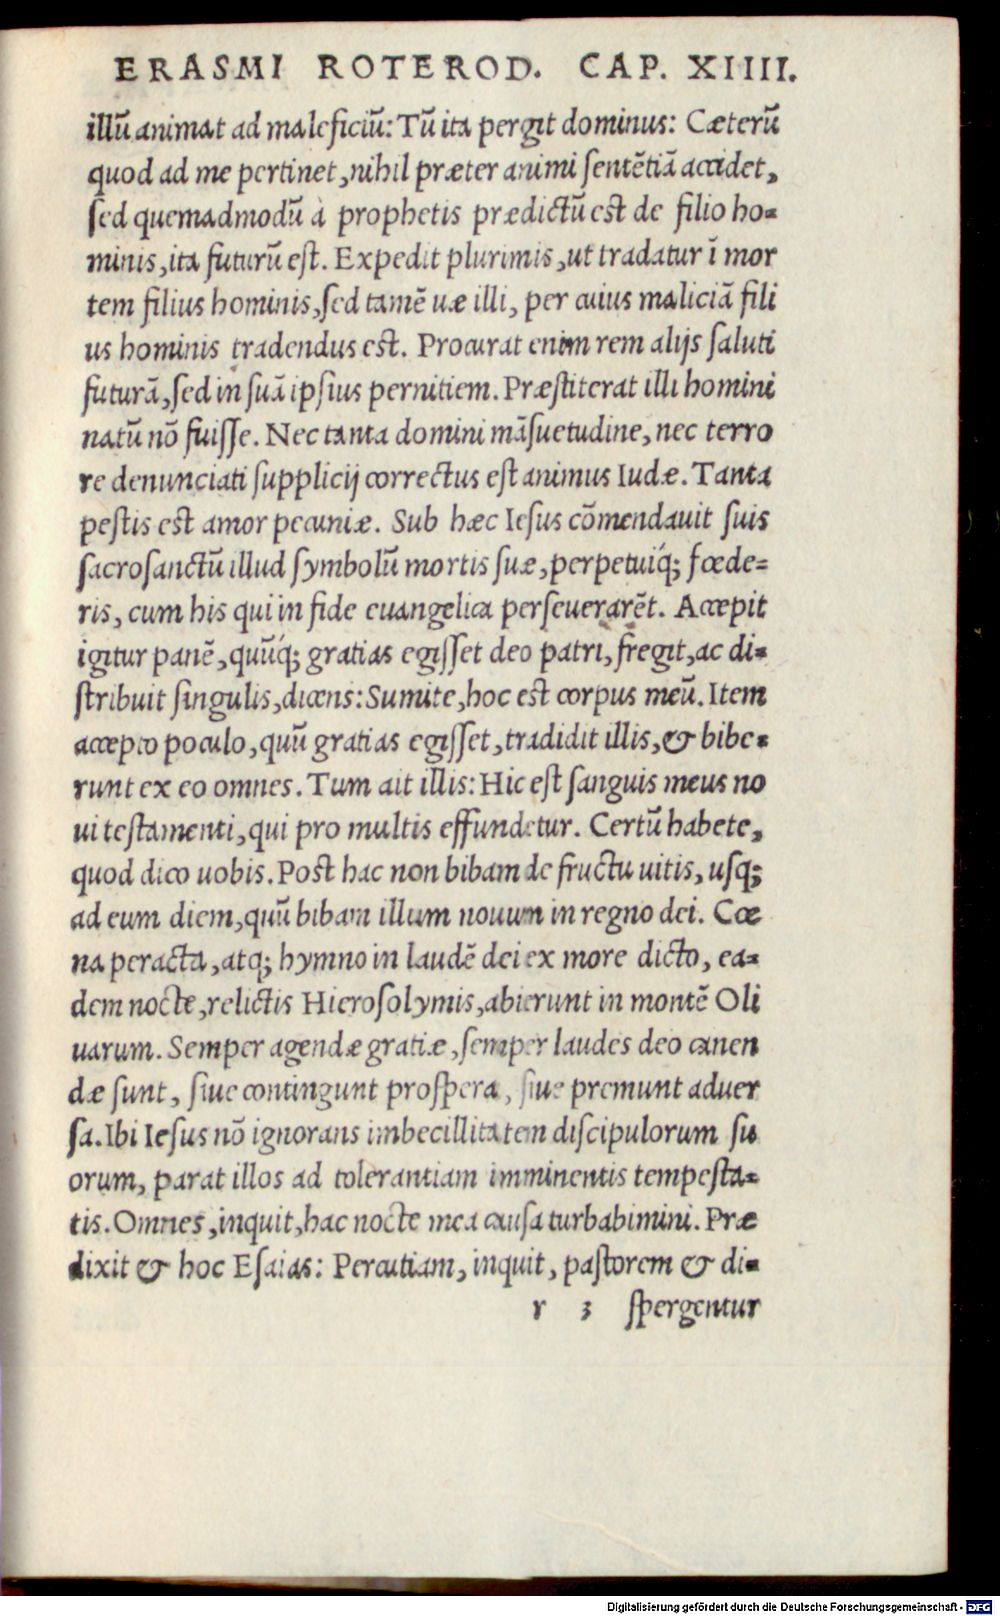 ERASMI ROTEROD. CAP. XIIII.
illũ animat ad maleficiũ: Tũ ita pergit dominus: Cæterũ
quod ad me pertinet, nihil præter animi sentẽtiã accidet,
sed quemadmodũ à prophetis prædictũ est de filio ho=
minis, ita futurũ est. Expedit plurimis, ut tradatur ĩ mor
tem filius hominis, sed tamẽ uæ illi, per cuius maliciã fili
us hominis tradendus est. Procurat enim rem alijs saluti
futurã, sed in suã ipsius pernitiem. Præstiterat illi homini
natũ nõ fuisse. Nec tanta domini mãsuetudine, nec terro
re denunciati supplicij correctus est animus Iudæ. Tanta
pestis est amor pecuniæ. Sub hæc Iesus cõmendauit suis
sacrosanctũ illud symbolũ mortis suæ, perpetuíq; fœde=
ris, cum his qui in fide euangelica perseuerarẽt. Accepit
igitur panẽ, quũq́; gratias egisset deo patri, fregit, ac di=
stribuit singulis, dicens: Sumite, hoc est corpus meũ. Item
accepto poculo, quũ gratias egisset, tradidit illis, & bibe=
runt ex eo omnes. Tum ait illis: Hic est sanguis meus no
ui testamenti, qui pro multis effundetur. Certũ habete,
quod dico uobis. Post hac non bibam de fructu uitis, usq;
ad eum diem, quũ bibam illum nouum in regno dei. Cœ
na peracta, atq; hymno in laudẽ dei ex more dicto, ea=
dem nocte, relictis Hierosolymis, abierunt in montẽ Oli
uarum. Semper agendæ gratiæ, semper laudes deo canen
dæ sunt, siue contingunt prospera, siue premunt aduer
sa. Ibi Iesus nõ ignorans imbecillitatem discipulorum su
orum, parat illos ad tolerantiam imminentis tempesta=
tis. Omnes, inquit, hac nocte mea causa turbabimini. Præ
dixit & hoc Esaias: Percutiam, inquit, pastorem & di=
r 3 spergentur
Digitalisierung gefördert durch die Deutsche Forschungsgemeinschaft - DFG